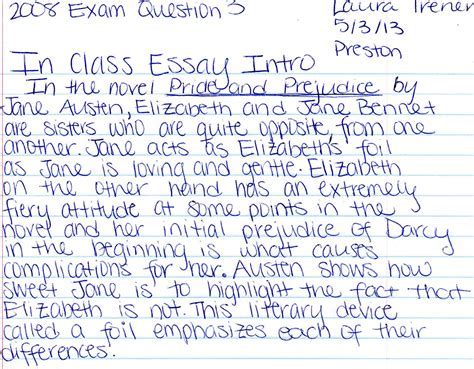 2008 Exam Question 3
Laura Trener
5/3/13
Preston
In Class Essay Intro
In the novel Pride and Prejudice by
Jane Austen, Elizabeth and Jane Bennet
are sisters who are quite opposite, from one
another. Jane acts as Elizabeth's foil
as Jane is loving and gentle. Elizabeth
on the other hand has an extremely
fiery attitude at some points in the
novel and her initial prejudice of Darcy
in the beginning is what causes
complications for her. Austen shows how
sweet Jane is to highlight the fact that
Elizabeth is not. This literary device
called a foil emphasizes each of their
differences.